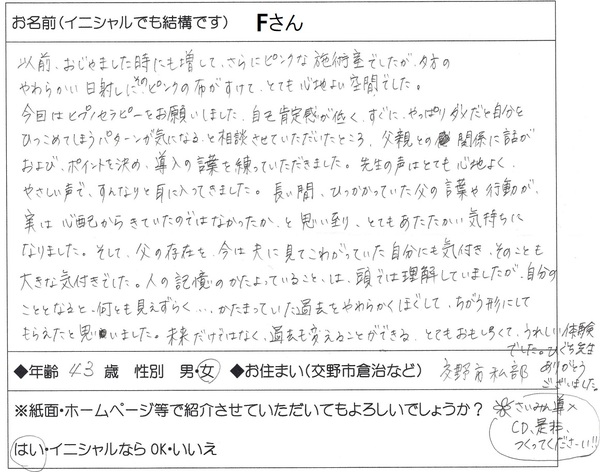 お名前(イニシャルでも結構です) Fさん
以前、おじゃました時にも増して、さらにピンクな施術室でしたが、夕方の
やわらかい日射しにそのピンクの布がすけて、とても心地よい空間でした。
今回はヒプノセラピーをお願いしました。自己肯定感が低く、すぐに、やっぱりダメだと自分を
ひっこめてしまうパターンが気になると相談させていただいたところ、父親との関係に話が
および、ポイントを決め、導入の言葉を練っていただきました。先生の声はとても心地よく、
やさしい声で、すんなりと耳に入ってきました。長い間、ひっかかっていた父の言葉や行動が、
実は心配からきていたのではなかったか、と思い至り、とてもあたたかい気持ちに
なりました。そして、父の存在を、今は夫に見てこわがっていた自分にも気付き、そのことも
大きな気付きでした。人の記憶のかたよっていること、は、頭では理解していましたが、自分の
こととなると、何とも見えずらく…、かたまっていた過去をやわらかくほぐして、ちがう形にして
もらえたと思いました。未来だけではなく、過去も変えることができる、とてもおもしろくて、うれしい体験
でした。ひぐち先生
ありがとう
ございました。
◆年齢 43 歳 性別 男・女 ◆お住まい(交野市倉治など) 交野市私部
※紙面・ホームページ等で紹介させていただいてもよろしいでしょうか?
はい・イニシャルならOK・いいえ
さいみん導入
CD、是非、
つくってくださーい!!